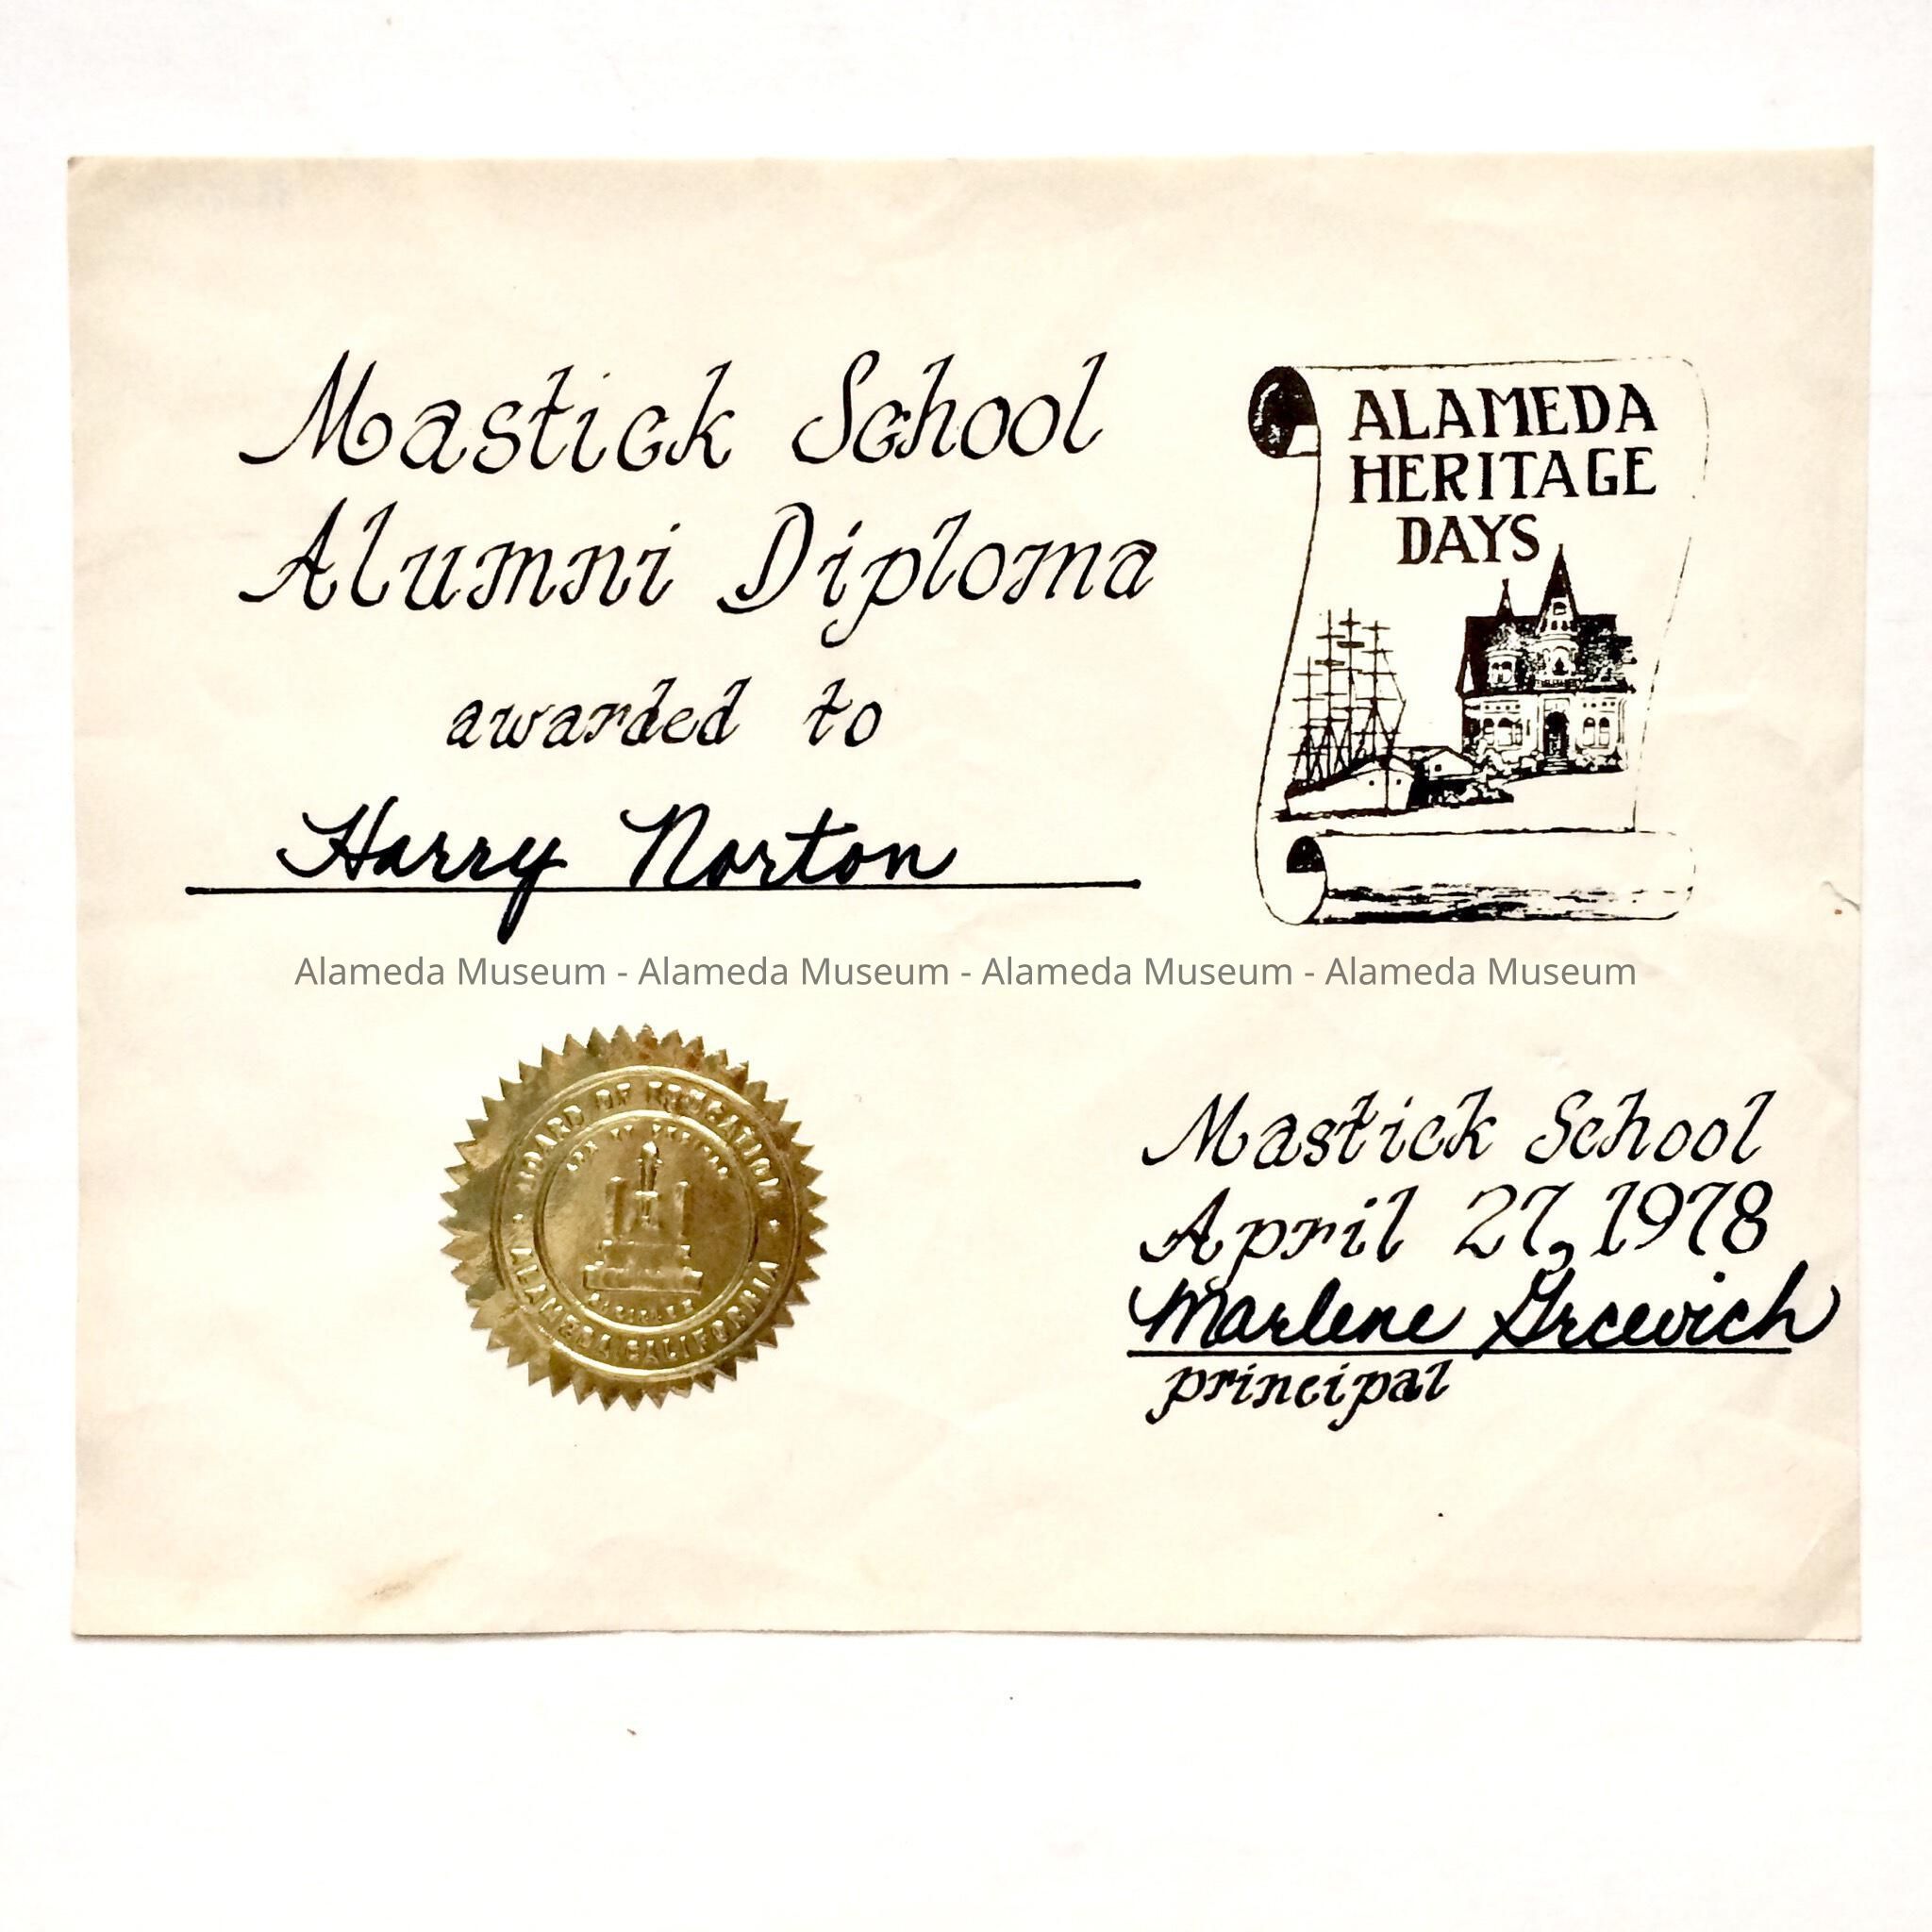 Mastick School
Alumni Diploma
awarded to
Harry Norton
ALAMEDA
HERITAGE
DAYS
Alameda Museum - Alameda Museum - Alameda Museum - Alameda Museum
BOARD OF EDUCATION
ALAMEDA CALIFORNIA
Mastick School
April 27, 1978
Marlene Grcevich
principal